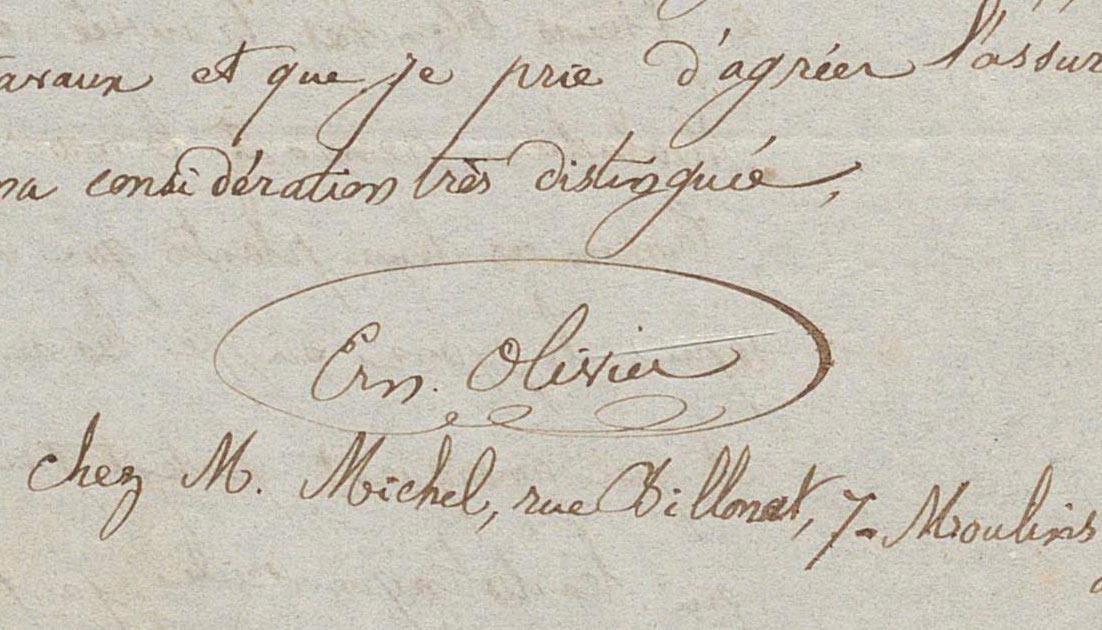 travaux et que je prie d'agréer l'assur
ma considération très distinguée,
Ern. Olivier
chez M. Michel, rue Billonat, 7 - Moulins